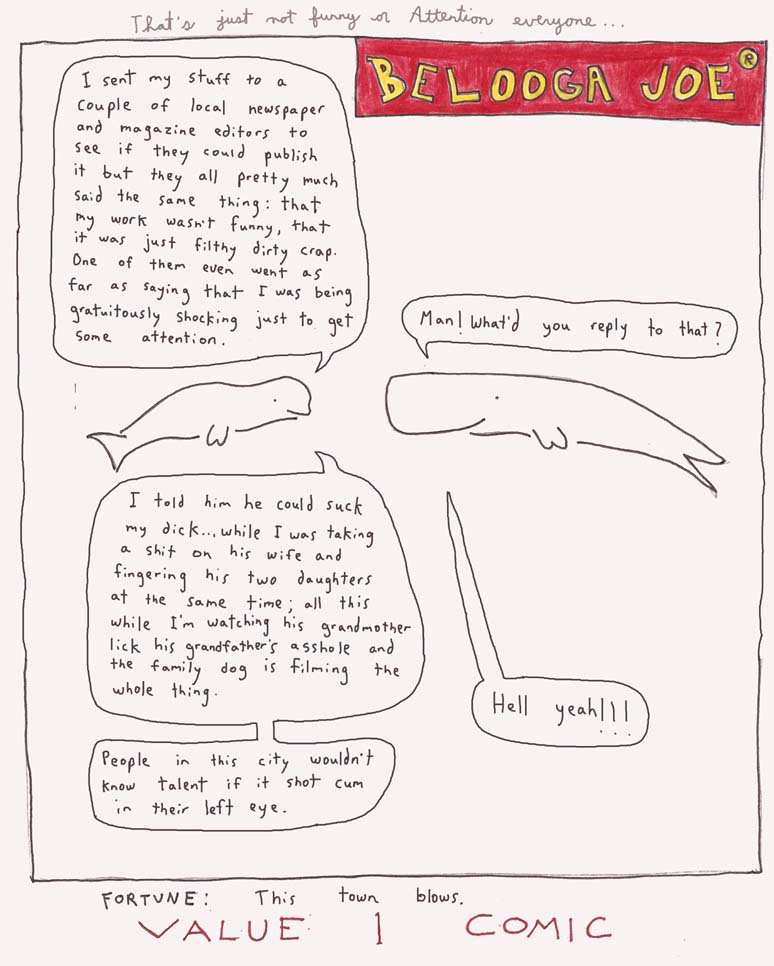 That's just not funny or Attention everyone...
BELOOGA JOE®
I sent my stuff to a
couple of local newspaper
and magazine editors to
see if they could publish
it but they all pretty much
said the same thing: that
my work wasn't funny, that
it was just filthy dirty crap.
One of them even went as
far as saying that I was being
gratuitously shocking just to get
some attention.
Man! What'd you reply to that?
I told him he could suck
my dick... while I was taking
a shit on his wife and
fingering his two daughters
at the same time; all this
while I'm watching his grandmother
lick his grandfather's asshole and
the family dog is filming the
whole thing.
People in this city wouldn't
know talent if it shot cum
in their left eye.
Hell yeah!!!
FORTUNE: This town blows.
VALUE 1 COMIC